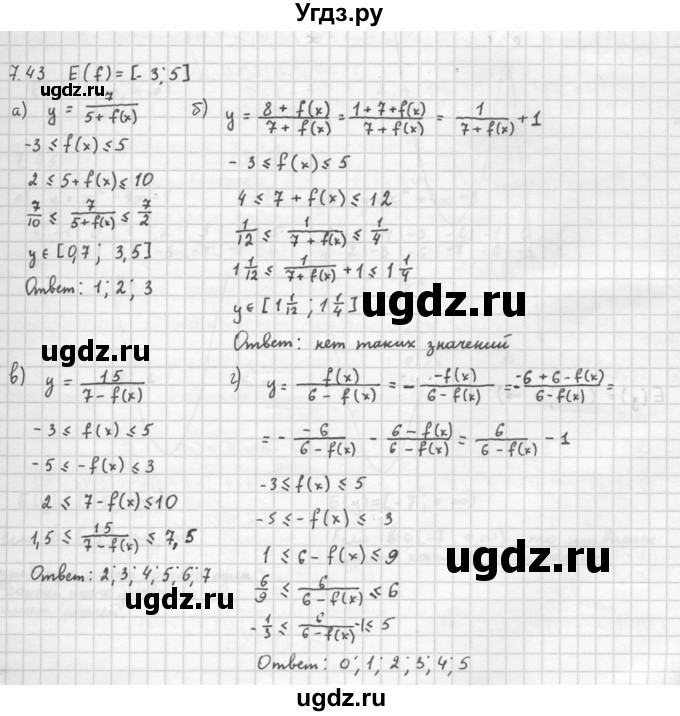 Угдз.ру
7.43 E(f)=[-3;5]
а) y = 7/(5+f(x))
-3 ≤ f(x) ≤ 5
2 ≤ 5+f(x) ≤ 10
7/10 ≤ 7/(5+f(x)) ≤ 7/2
y ∈ [0,7; 3,5]
Ответ: 1; 2; 3
б) y = (8+f(x))/(7+f(x)) = (1+7+f(x))/(7+f(x)) = 1/(7+f(x)) + 1
-3 ≤ f(x) ≤ 5
4 ≤ 7+f(x) ≤ 12
1/12 ≤ 1/(7+f(x)) ≤ 1/4
1 1/12 ≤ 1/(7+f(x)) + 1 ≤ 1 1/4
y ∈ [1 1/12; 1 1/4]
Ответ: нет таких значений
ugdz.ru
ugdz.ru
в) y = 15/(7-f(x))
-3 ≤ f(x) ≤ 5
-5 ≤ -f(x) ≤ 3
2 ≤ 7-f(x) ≤ 10
1,5 ≤ 15/(7-f(x)) ≤ 7,5
Ответ: 2; 3; 4; 5; 6; 7
г) y = f(x)/(6-f(x)) = - -f(x)/(6-f(x)) = - (-6+6-f(x))/(6-f(x)) =
= - -6/(6-f(x)) - (6-f(x))/(6-f(x)) = 6/(6-f(x)) - 1
-3 ≤ f(x) ≤ 5
-5 ≤ -f(x) ≤ 3
1 ≤ 6-f(x) ≤ 9
6/9 ≤ 6/(6-f(x)) ≤ 6
-1/3 ≤ 6/(6-f(x)) -1 ≤ 5
Ответ: 0; 1; 2; 3; 4; 5
ugdz.ru
ugdz.ru
ugdz.ru